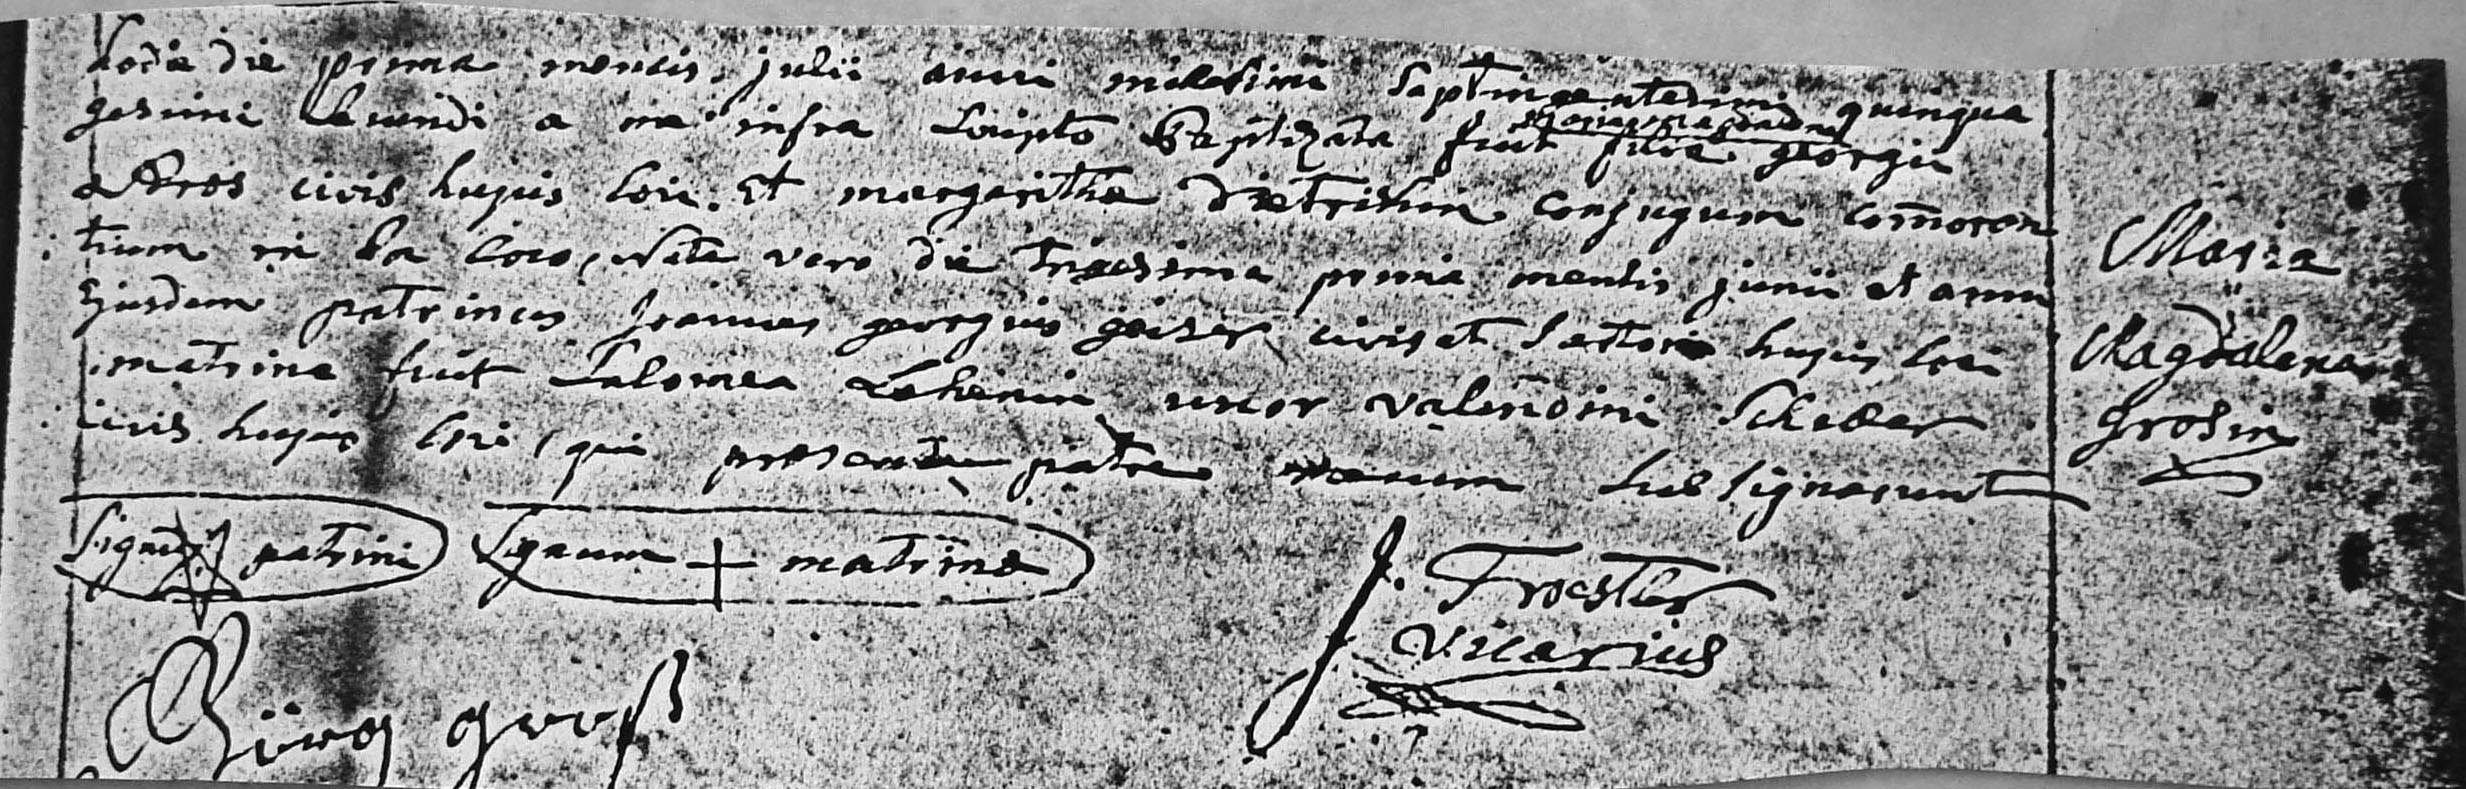 hodie die prima mensis julii anni millesimi Septingentesimi quinqua
gesimi secundi a me infra scripto Baptizata fuit filia georgii
maria magdalena
gros civis hujus loci et margaritha Dietrichin conjugum com̄oran
tium in ea loco, Nata vero die trigesima prima mensis junii et anni
Ejusdem patrinus Joannes georgius geiser civis et sartor hujus loci
matrina fuit Salomea uxor valentini Scheder
civis hujus loci, qui presente patre mecum subsignarunt
Maria
Magdalena
grosin
Signum patrini Signum + matrinæ
J. Troestler
vicarius
Jürg groß